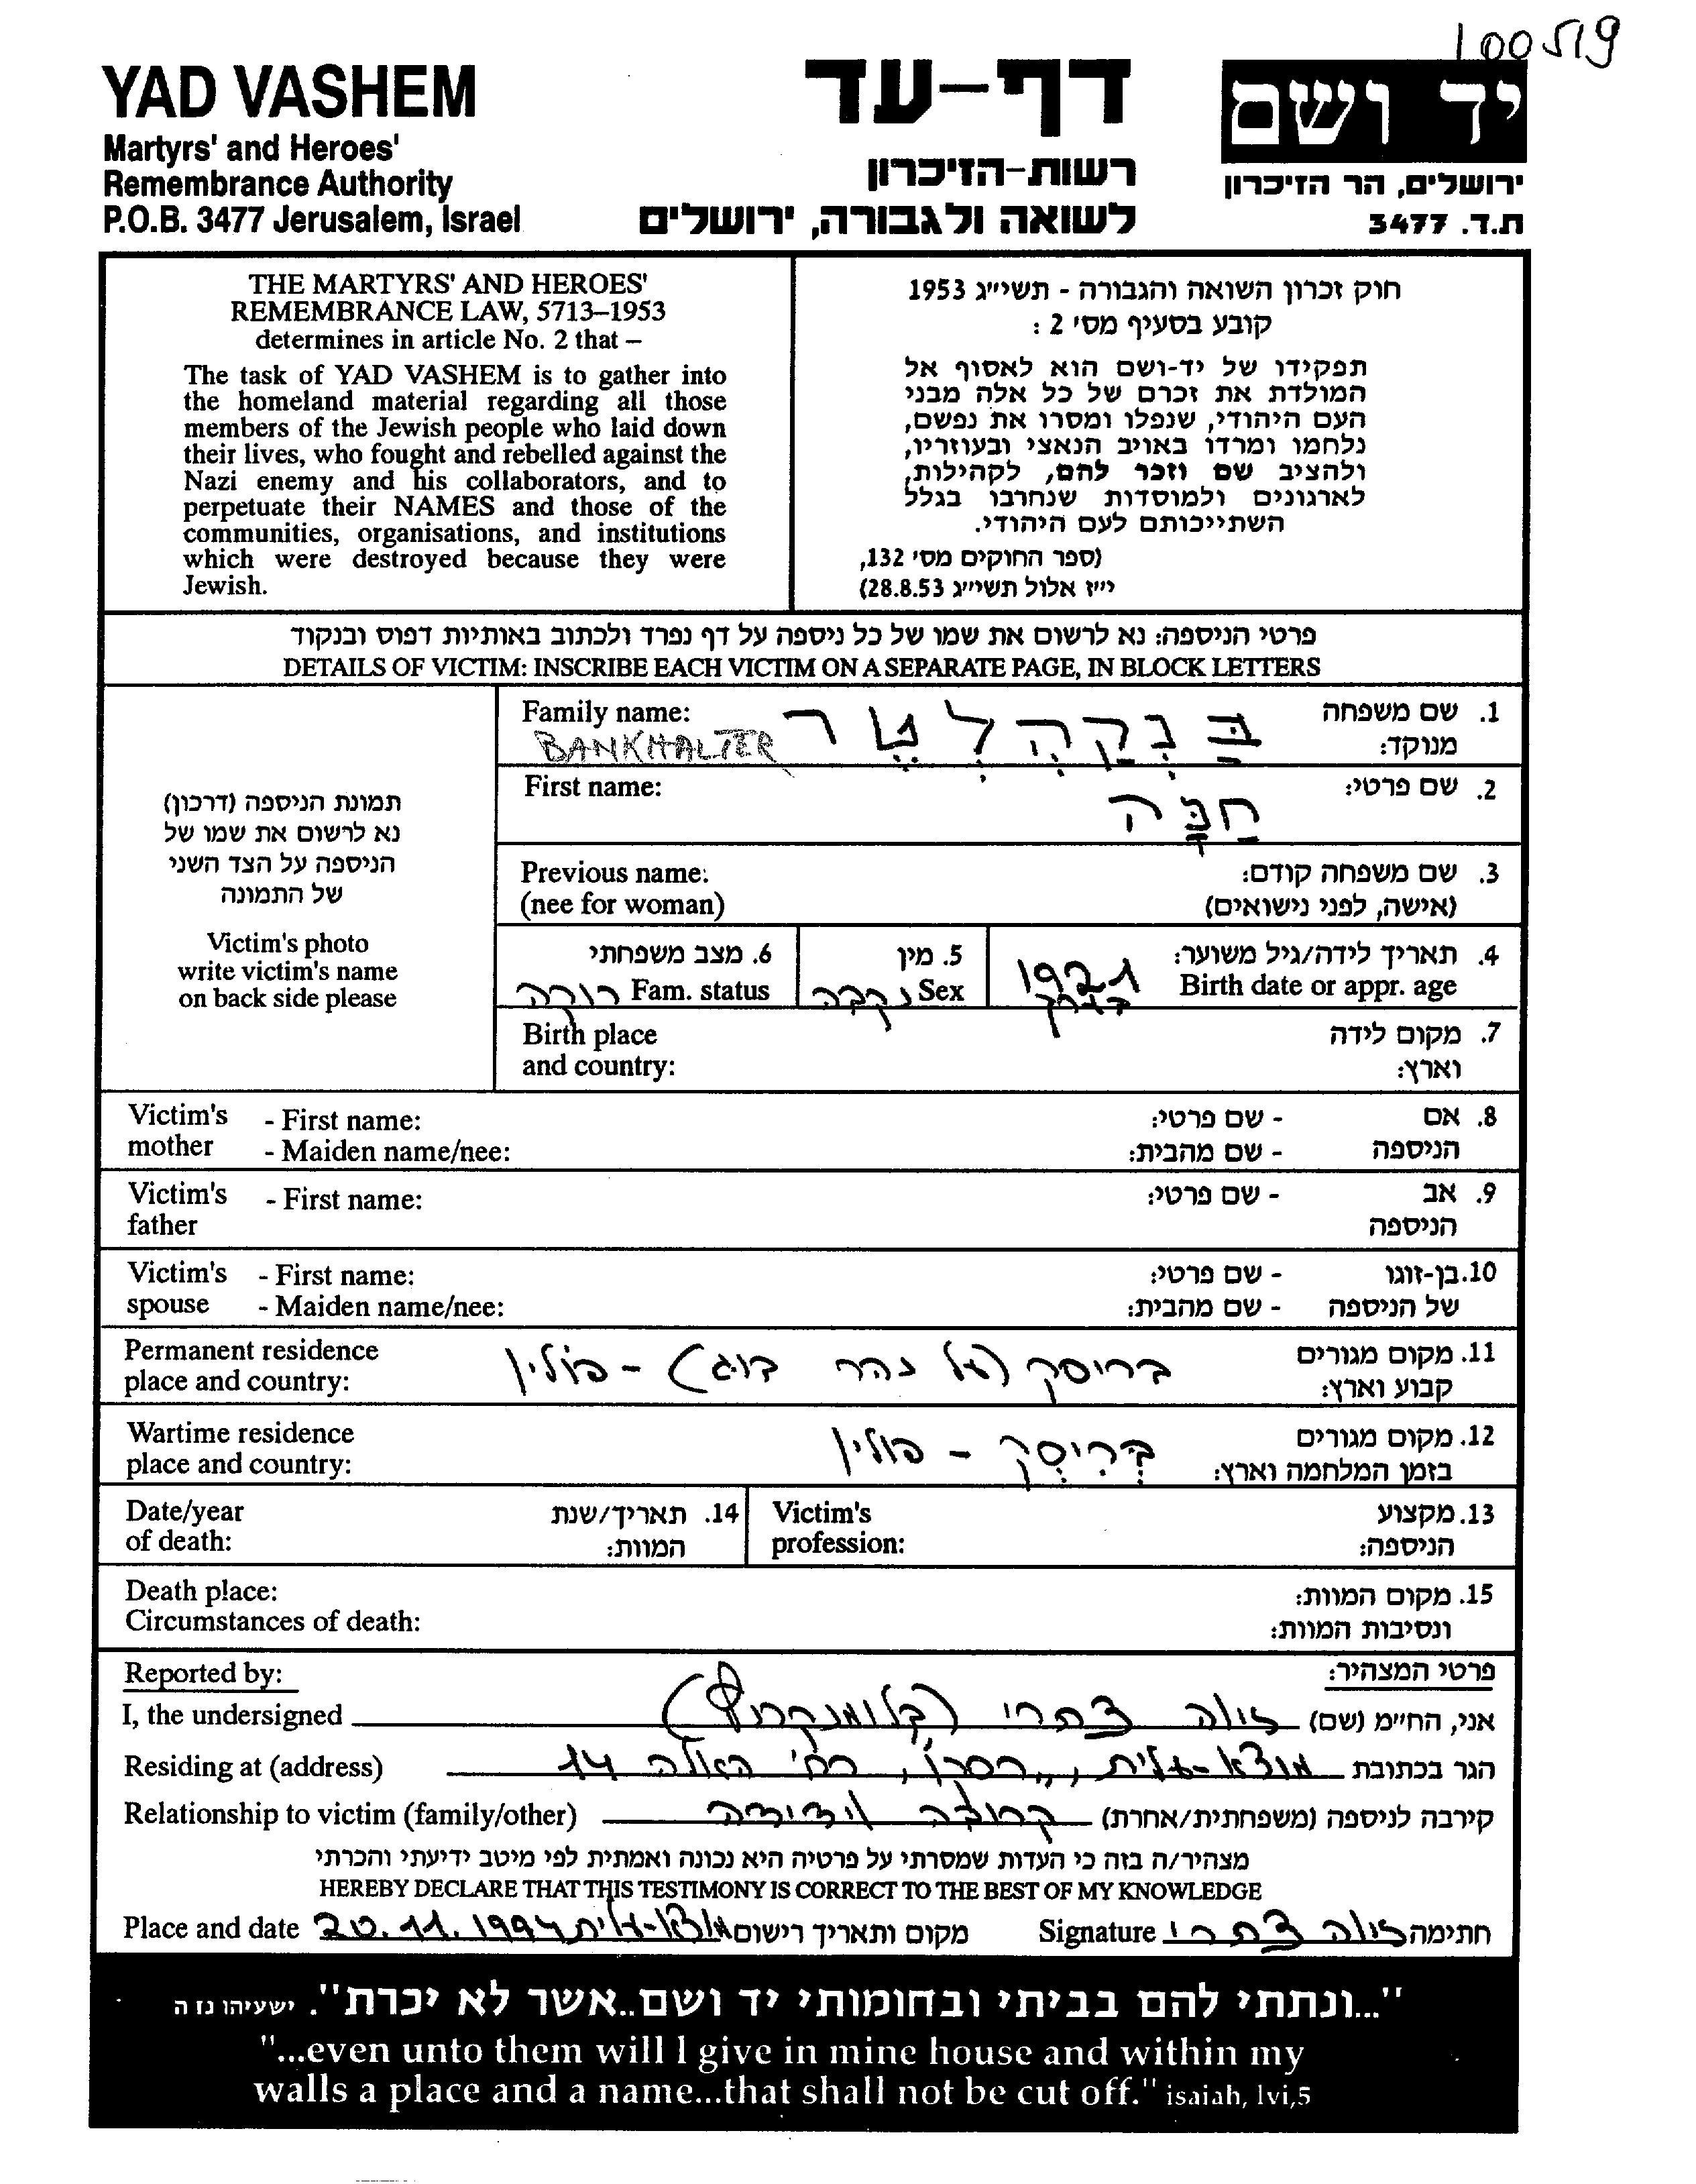 100519
YAD VASHEM
Martyrs' and Heroes'
Remembrance Authority
P.O.B. 3477 Jerusalem, Israel
דף-עד
רשות-הזיכרון
לשואה ולגבורה, ירושלים
יד ושם
ירושלים, הר הזיכרון
ת.ד. 3477
THE MARTYRS' AND HEROES'
REMEMBRANCE LAW, 5713–1953
determines in article No. 2 that –
The task of YAD VASHEM is to gather into
the homeland material regarding all those
members of the Jewish people who laid down
their lives, who fought and rebelled against the
Nazi enemy and his collaborators, and to
perpetuate their NAMES and those of the
communities, organisations, and institutions
which were destroyed because they were
Jewish.
חוק זכרון השואה והגבורה - תשי״ג 1953
קובע בסעיף מס׳ 2 :
תפקידו של יד-ושם הוא לאסוף אל
המולדת את זכרם של כל אלה מבני
העם היהודי, שנפלו ומסרו את נפשם,
נלחמו ומרדו באויב הנאצי ובעוזריו,
ולהציב שם וזכר להם, לקהילות,
לארגונים ולמוסדות שנחרבו בגלל
השתייכותם לעם היהודי.
(ספר החוקים מס׳ 132,
י״ז אלול תשי״ג 28.8.53)
פרטי הניספה: נא לרשום את שמו של כל ניספה על דף נפרד ולכתוב באותיות דפוס ובנקוד
DETAILS OF VICTIM: INSCRIBE EACH VICTIM ON A SEPARATE PAGE, IN BLOCK LETTERS
תמונת הניספה (דרכון)
נא לרשום את שמו של
הניספה על הצד השני
של התמונה
Victim's photo
write victim's name
on back side please
Family name: בַּנְקַהַלְטֶר 1. שם משפחה
BANKHALTER מנוקד:
First name: חַנָּה 2. שם פרטי:
Previous name: 3. שם משפחה קודם:
(nee for woman) (אישה, לפני נישואים)
4. תאריך לידה/גיל משוער:
Birth date or appr. age 1921 בערך
5. מין
Sex נקבה
6. מצב משפחתי
Fam. status רווקה
Birth place 7. מקום לידה
and country: וארץ:
Victim's - First name: - שם פרטי: 8. אם
mother - Maiden name/nee: - שם מהבית: הניספה
Victim's - First name: - שם פרטי: 9. אב
father הניספה
Victim's - First name: - שם פרטי: 10. בן-זוגו
spouse - Maiden name/nee: - שם מהבית: של הניספה
Permanent residence 11. מקום מגורים
place and country: בריסק (על נהר בוג) - פולין קבוע וארץ:
Wartime residence 12. מקום מגורים
place and country: בְּרִיסְק - פולין בזמן המלחמה וארץ:
Date/year 14. תאריך/שנת
of death: המוות:
Victim's 13. מקצוע
profession: הניספה:
Death place: 15. מקום המוות:
Circumstances of death: ונסיבות המוות:
Reported by: פרטי המצהיר:
I, the undersigned אני, החי״מ (שם)
Residing at (address) הגר בכתובת מוצא-עלית, רח׳ האלה 14
Relationship to victim (family/other) קירבה לניספה (משפחתית/אחרת) קרובה וידידה
מצהיר/ה בזה כי העדות שמסרתי על פרטיה היא נכונה ואמתית לפי מיטב ידיעתי והכרתי
HEREBY DECLARE THAT THIS TESTIMONY IS CORRECT TO THE BEST OF MY KNOWLEDGE
Place and date מקום ותאריך רישום מוצא-עלית 20.11.1994 Signature חתימה
"...ונתתי להם בביתי ובחומותי יד ושם..אשר לא יכרת". ישעיהו נז ה
"...even unto them will I give in mine house and within my
walls a place and a name...that shall not be cut off." isaiah, lvi,5